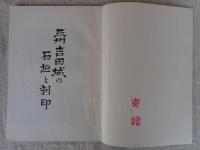 三州吉田城の
石垣と刻印
寄贈